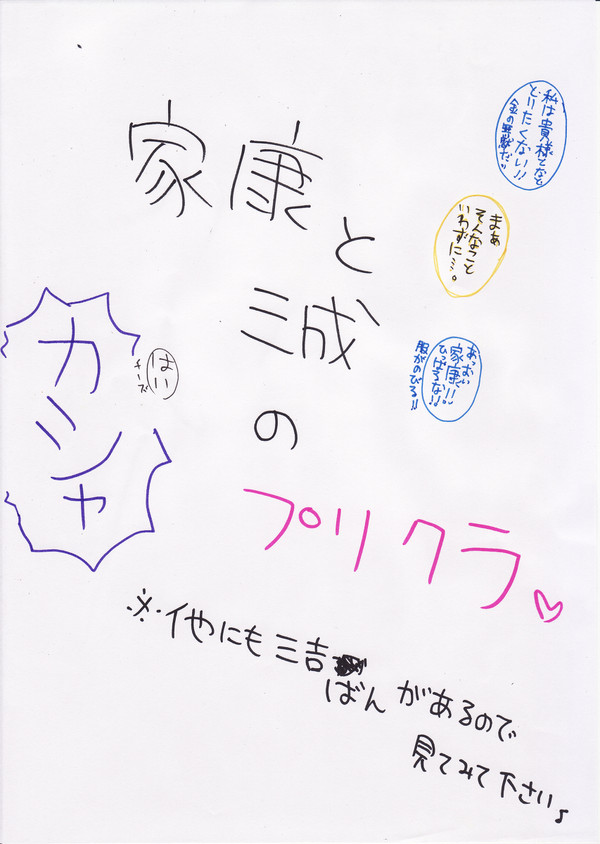 私は貴様となど
とりたくない!!
家康と
まぁ
そんなこと
いわずに…。
三成
の
あっおい
家康!!
ひっぱるな!!
服がのびる!!
はい
チーズ
カシャ
プリクラ♡
※他にも三吉
ばんがあるので
見てみて下さい♪